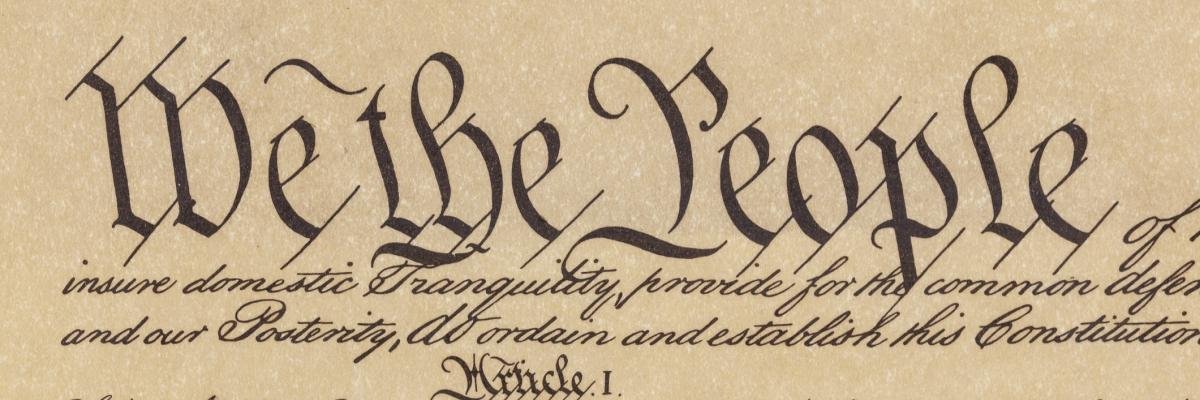 We the People of
insure domestic Tranquility, provide for the common defen
and our Posterity, do ordain and establish this Constitution
Article. I.